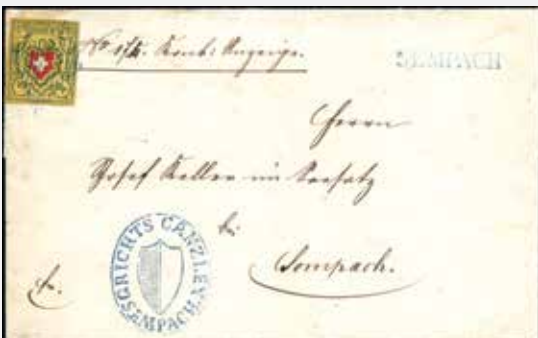 No 1/4. Konk: Anzeige.
SEMPACH
Herrn
Josef Keller im Seesatz
bei
Sempach.
GRICHTS CANZLEY SEMPACH
fr.